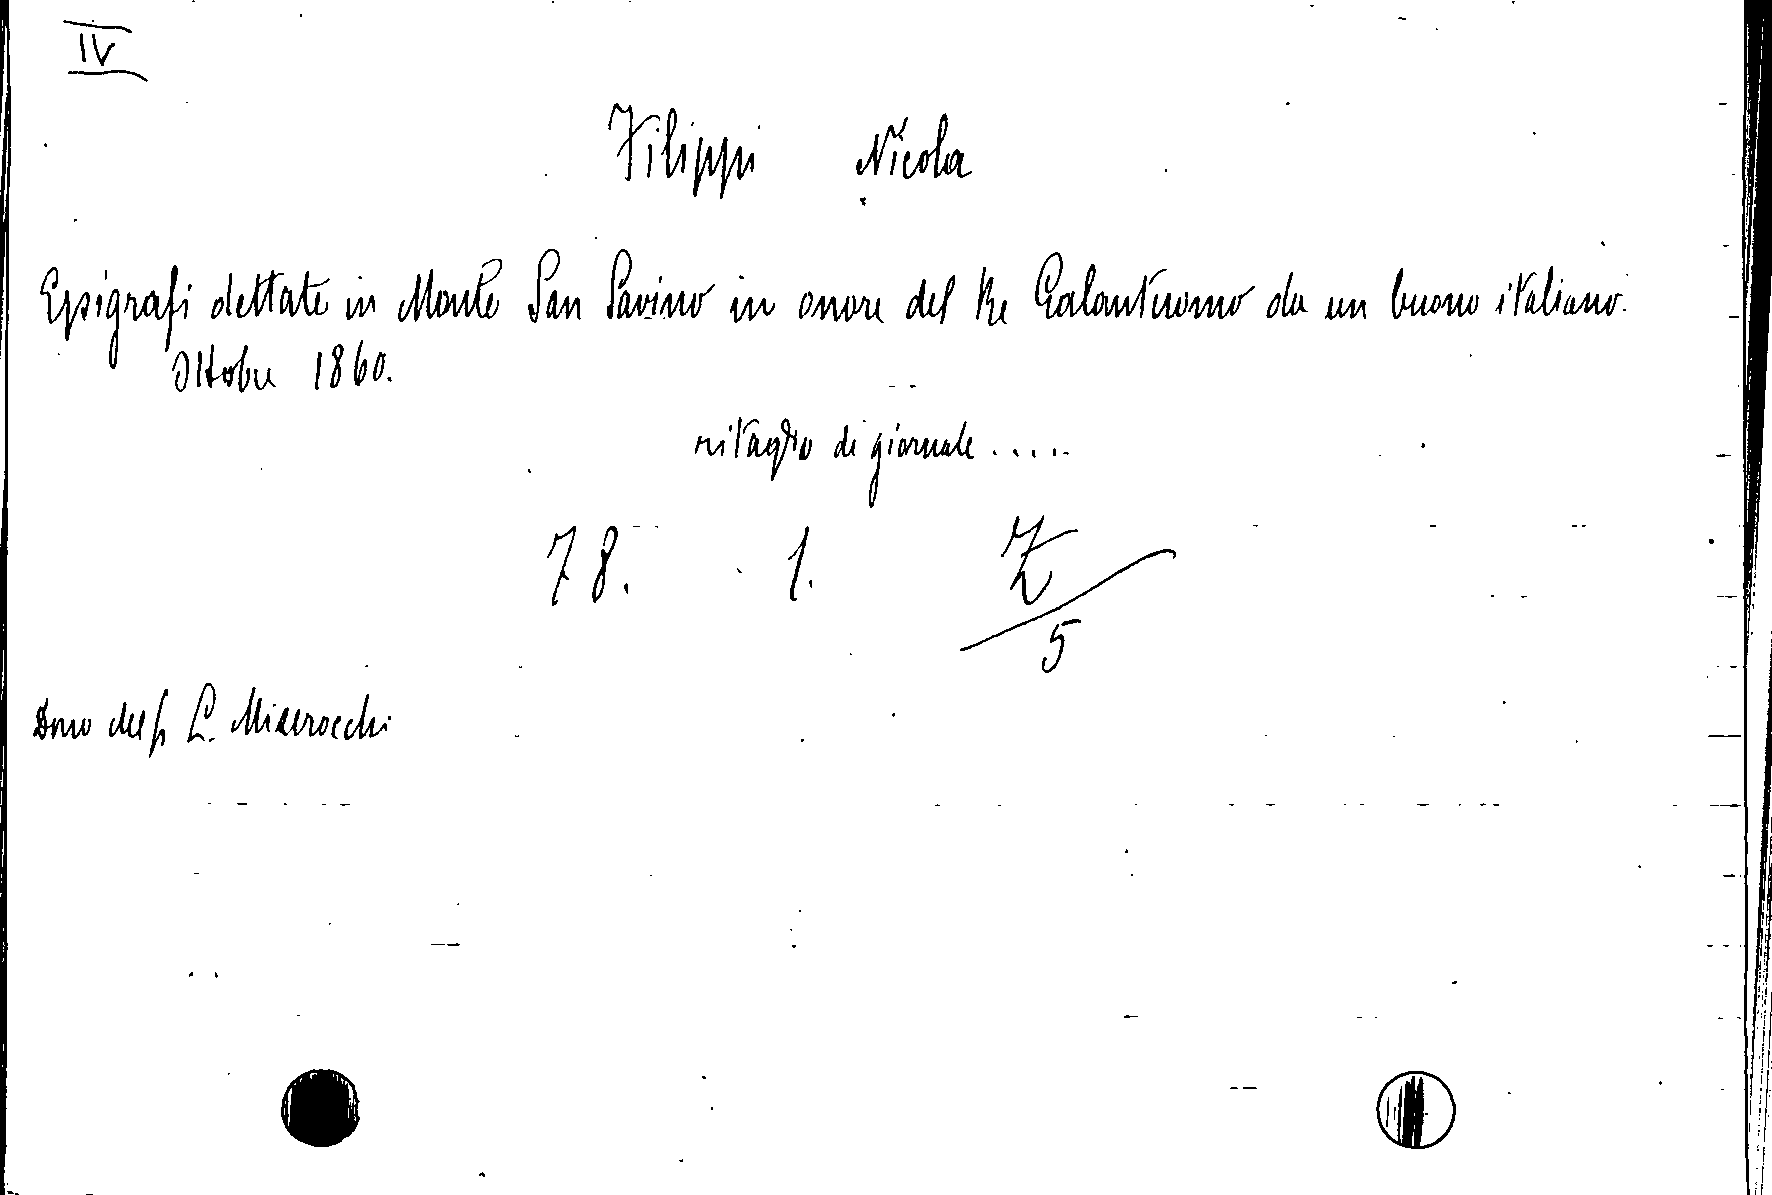 IV
Filippi Nicola
Epigrafi dettate in Monte San Savino in onore del Re Galantuomo da un buono italiano.
Ottobre 1860.
ritaglio di giornale .....
78. 1. Z/5
Dono del P. L. Miserocchi